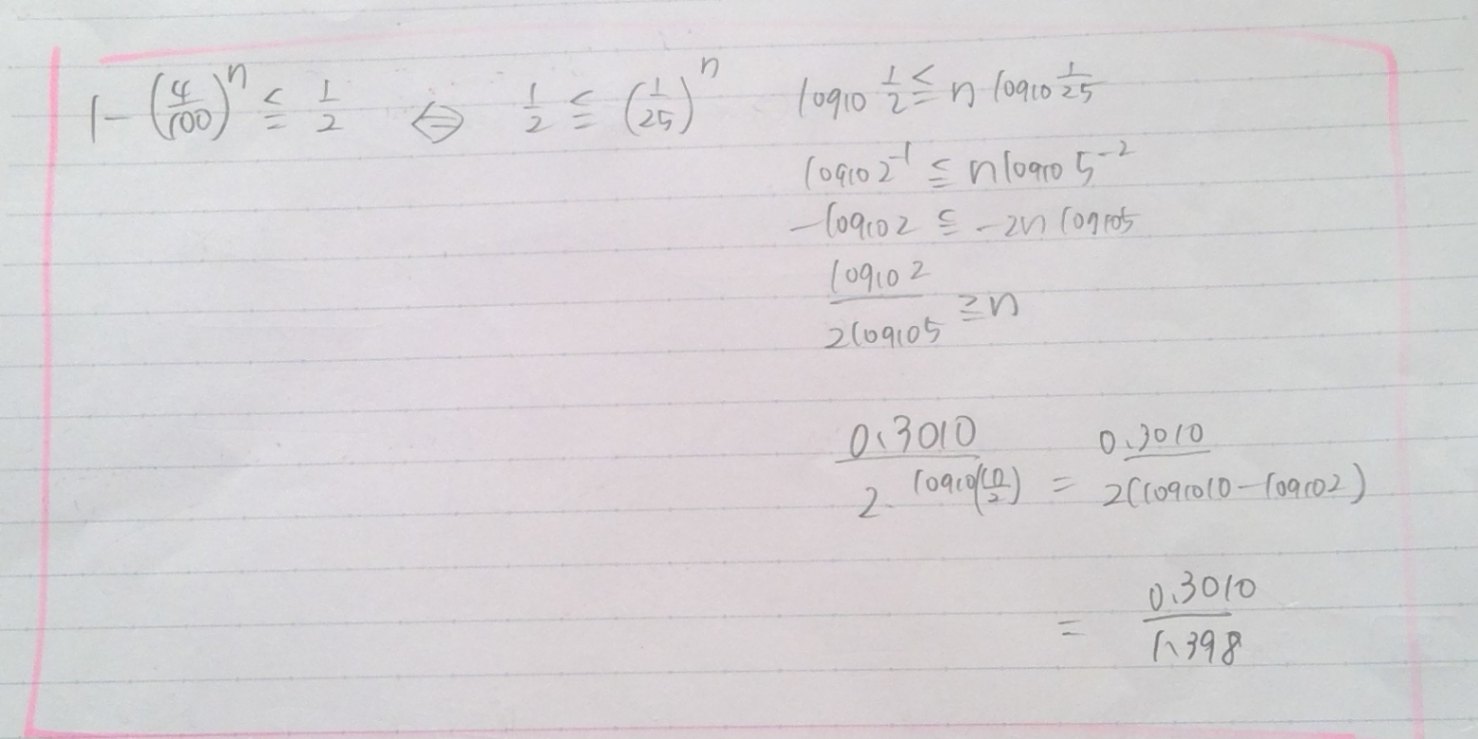 1 - (4/100)^n ≦ 1/2 ⇔ 1/2 ≦ (1/25)^n
log10 1/2 ≦ n log10 1/25
log10 2^-1 ≦ n log10 5^-2
-log10 2 ≦ -2n log10 5
log10 2 / 2log10 5 ≧ n
0.3010 / 2・log10(10/2) = 0.3010 / 2(log10 10 - log10 2)
= 0.3010 / 1.398